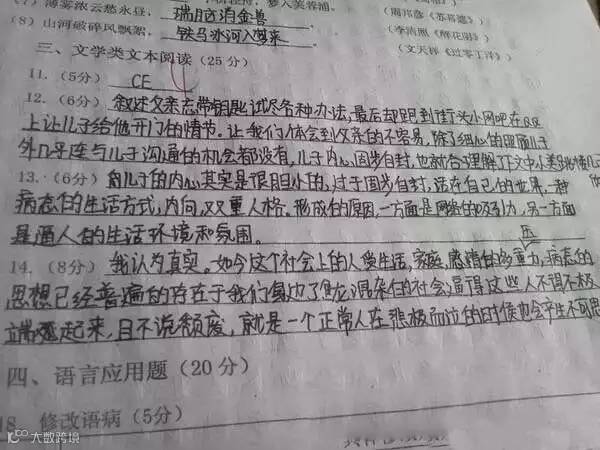 (7) 薄雾浓云愁永昼，瑞脑消金兽。 (李清照《醉花阴》)
(8) 山河破碎风飘絮， 铁马冰河入梦来 (文天祥《过零丁洋》)
三、文学类文本阅读(25分)
11.(5分) CE
12.(6分) 叙述父亲忘带钥匙试尽各种办法,最后却跑到街头小网吧在QQ
上让儿子给他开门的情节。让我们体会到父亲的不容易,除了细心的照顾儿子
外几乎连与儿子沟通的机会都没有,儿子内心固步自封,也就
13.(6分) 儿子的内心其实是很胆小的,过于固步自封,活在自己的世界,一种
病态的生活方式,内向,双重人格。形成的原因,一方面是网络的吸引力,另一方面
是逼人的生活环境和氛围。
14.(8分) 我认为真实。如今这个社会上的人受生活,家庭,感情的多重压力,病态的
思想已经普遍的存在于我们身边了,鱼龙混杂的社会逼得这些人不得不极
端起来,且不说颓废,就是一个正常人在悲极而泣的时候也会产生不可思
四、语言应用题(20分)
18 修改语病(5分)
大数跨境